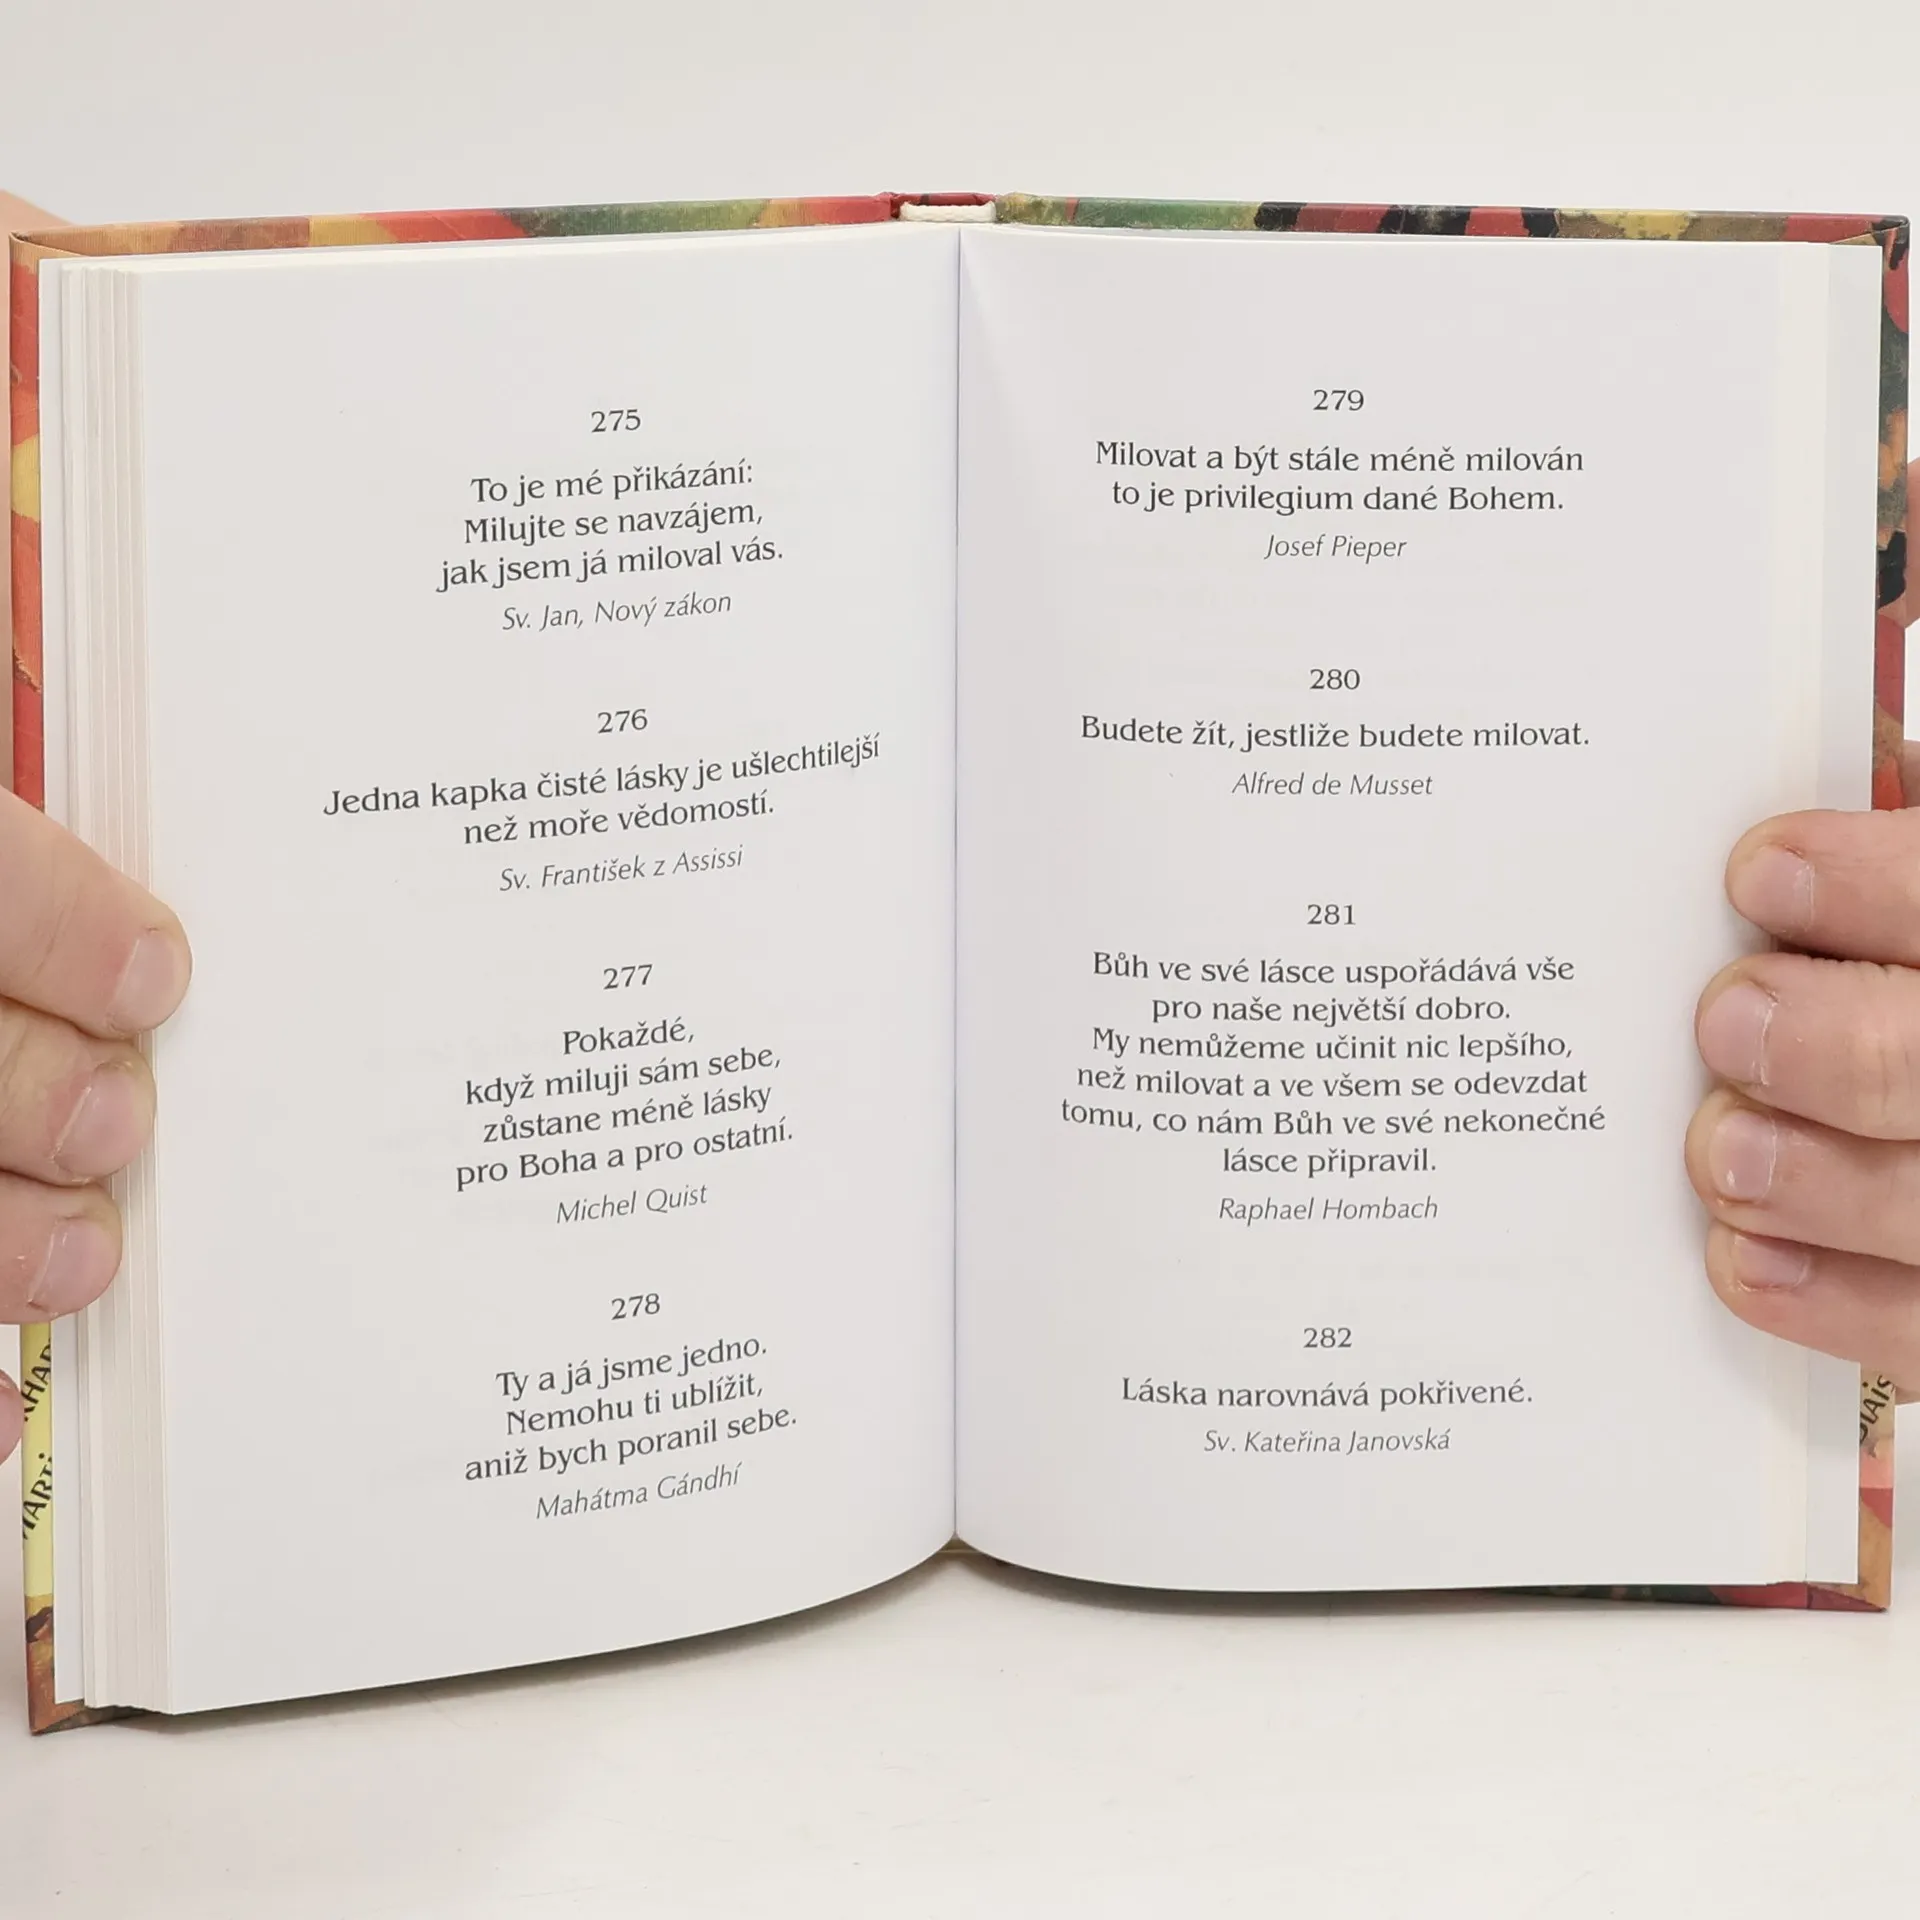 275
To je mé přikázání:
Milujte se navzájem,
jak jsem já miloval vás.
Sv. Jan, Nový zákon
276
Jedna kapka čisté lásky je ušlechtilejší
než moře vědomostí.
Sv. František z Assissi
277
Pokaždé,
když miluji sám sebe,
zůstane méně lásky
pro Boha a pro ostatní.
Michel Quist
278
Ty a já jsme jedno.
Nemohu ti ublížit,
aniž bych poranil sebe.
Mahátma Gándhí
279
Milovat a být stále méně milován
to je privilegium dané Bohem.
Josef Pieper
280
Budete žít, jestliže budete milovat.
Alfred de Musset
281
Bůh ve své lásce uspořádává vše
pro naše největší dobro.
My nemůžeme učinit nic lepšího,
než milovat a ve všem se odevzdat
tomu, co nám Bůh ve své nekonečné
lásce připravil.
Raphael Hombach
282
Láska narovnává pokřivené.
Sv. Kateřina Janovská